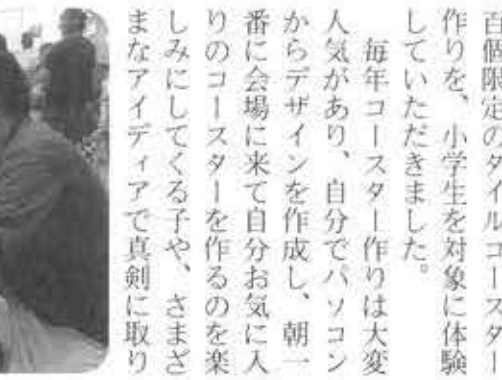 百個限定のタイルコースター
作りを、小学生を対象に体験
していただきました。
毎年コースター作りは大変
人気があり、自分でパソコン
からデザインを作成し、朝一
番に会場に来て自分お気に入
りのコースターを作るのを楽
しみにしてくる子や、さまざ
まなアイディアで真剣に取り